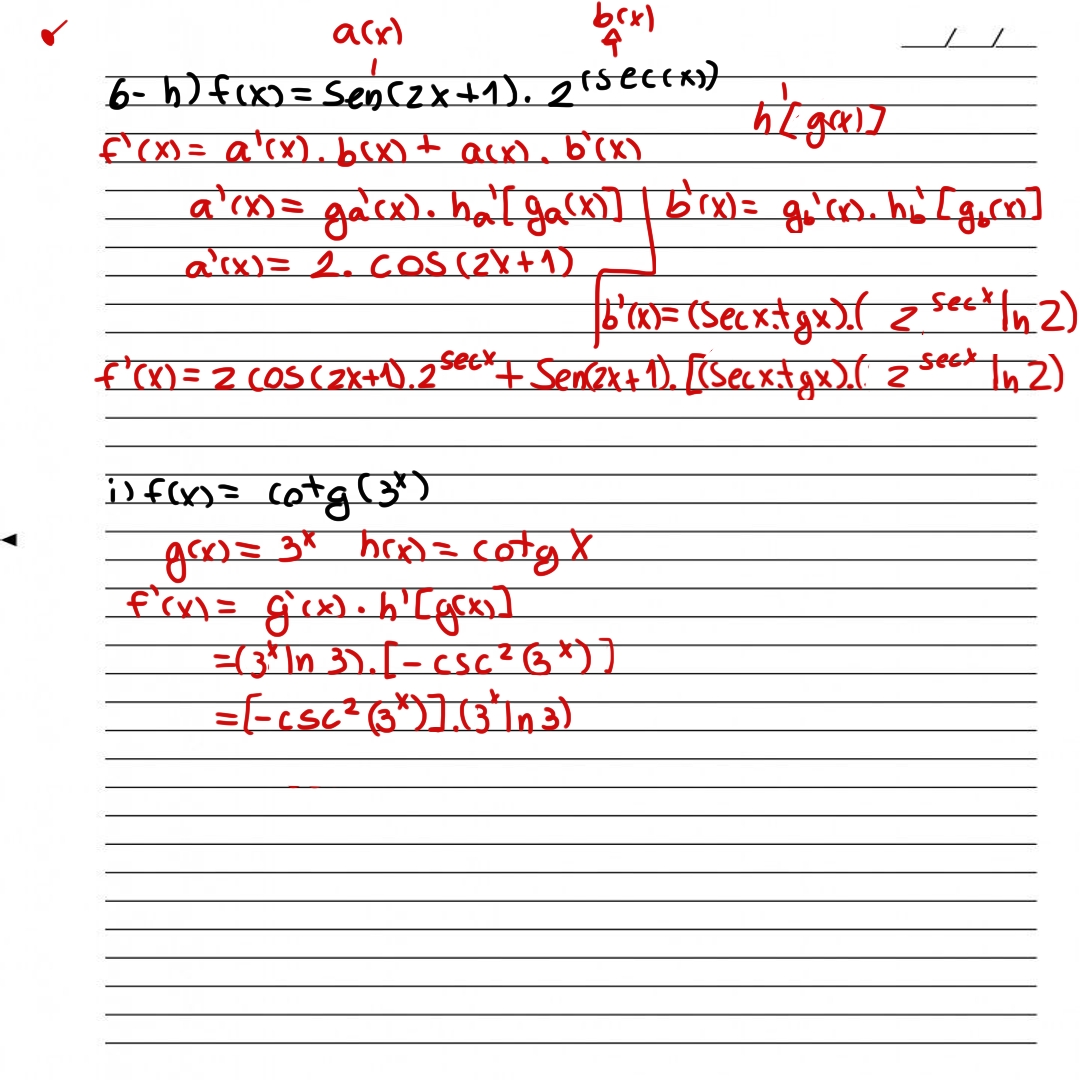 a(x) b(x)
6- h) f(x) = Sen(2x+1). 2^(sec(x))
h'[g(x)]
f'(x) = a'(x). b(x) + a(x). b'(x)
a'(x) = ga'(x). ha'[ga(x)] b'(x) = gb'(x). hb'[gb(x)]
a'(x) = 2. cos(2x+1)
b'(x) = (Secx.tgx).( 2^secx ln 2)
f'(x) = 2 cos(2x+1).2^secx + Sen(2x+1). [(Secx.tgx).( 2^secx ln 2)
i) f(x) = cotg(3^x)
g(x) = 3^x h(x) = cotg x
f'(x) = g'(x) . h'[g(x)]
=(3^x ln 3).[- csc²(3^x)]
=[-csc²(3^x)].(3^x ln 3)